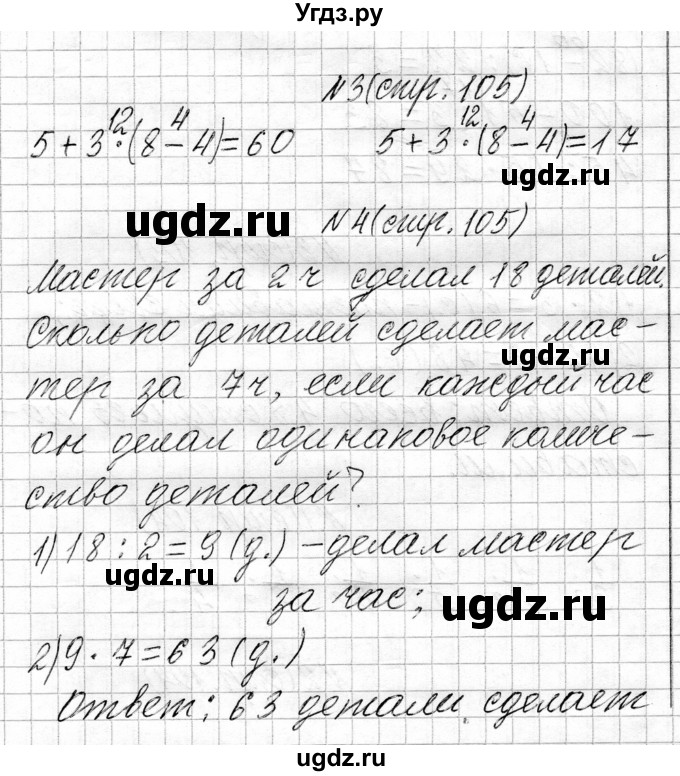 Угдз.ру
№3(стр. 105)
12 4 12 4
5+3·(8-4)=60 5+3·(8-4)=17
ugdz.ru
ugdz.ru
№4(стр. 105)
Мастер за 2ч сделал 18 деталей.
Сколько деталей сделает мас-
ugdz.ru
тер за 7ч, если каждый час
он делал одинаковое количе-
ство деталей?
1) 18:2=9(д.) - делал мастер
ugdz.ru
за час;
ugdz.ru
2) 9·7=63(д.)
Ответ: 63 детали сделает
ugdz.ru